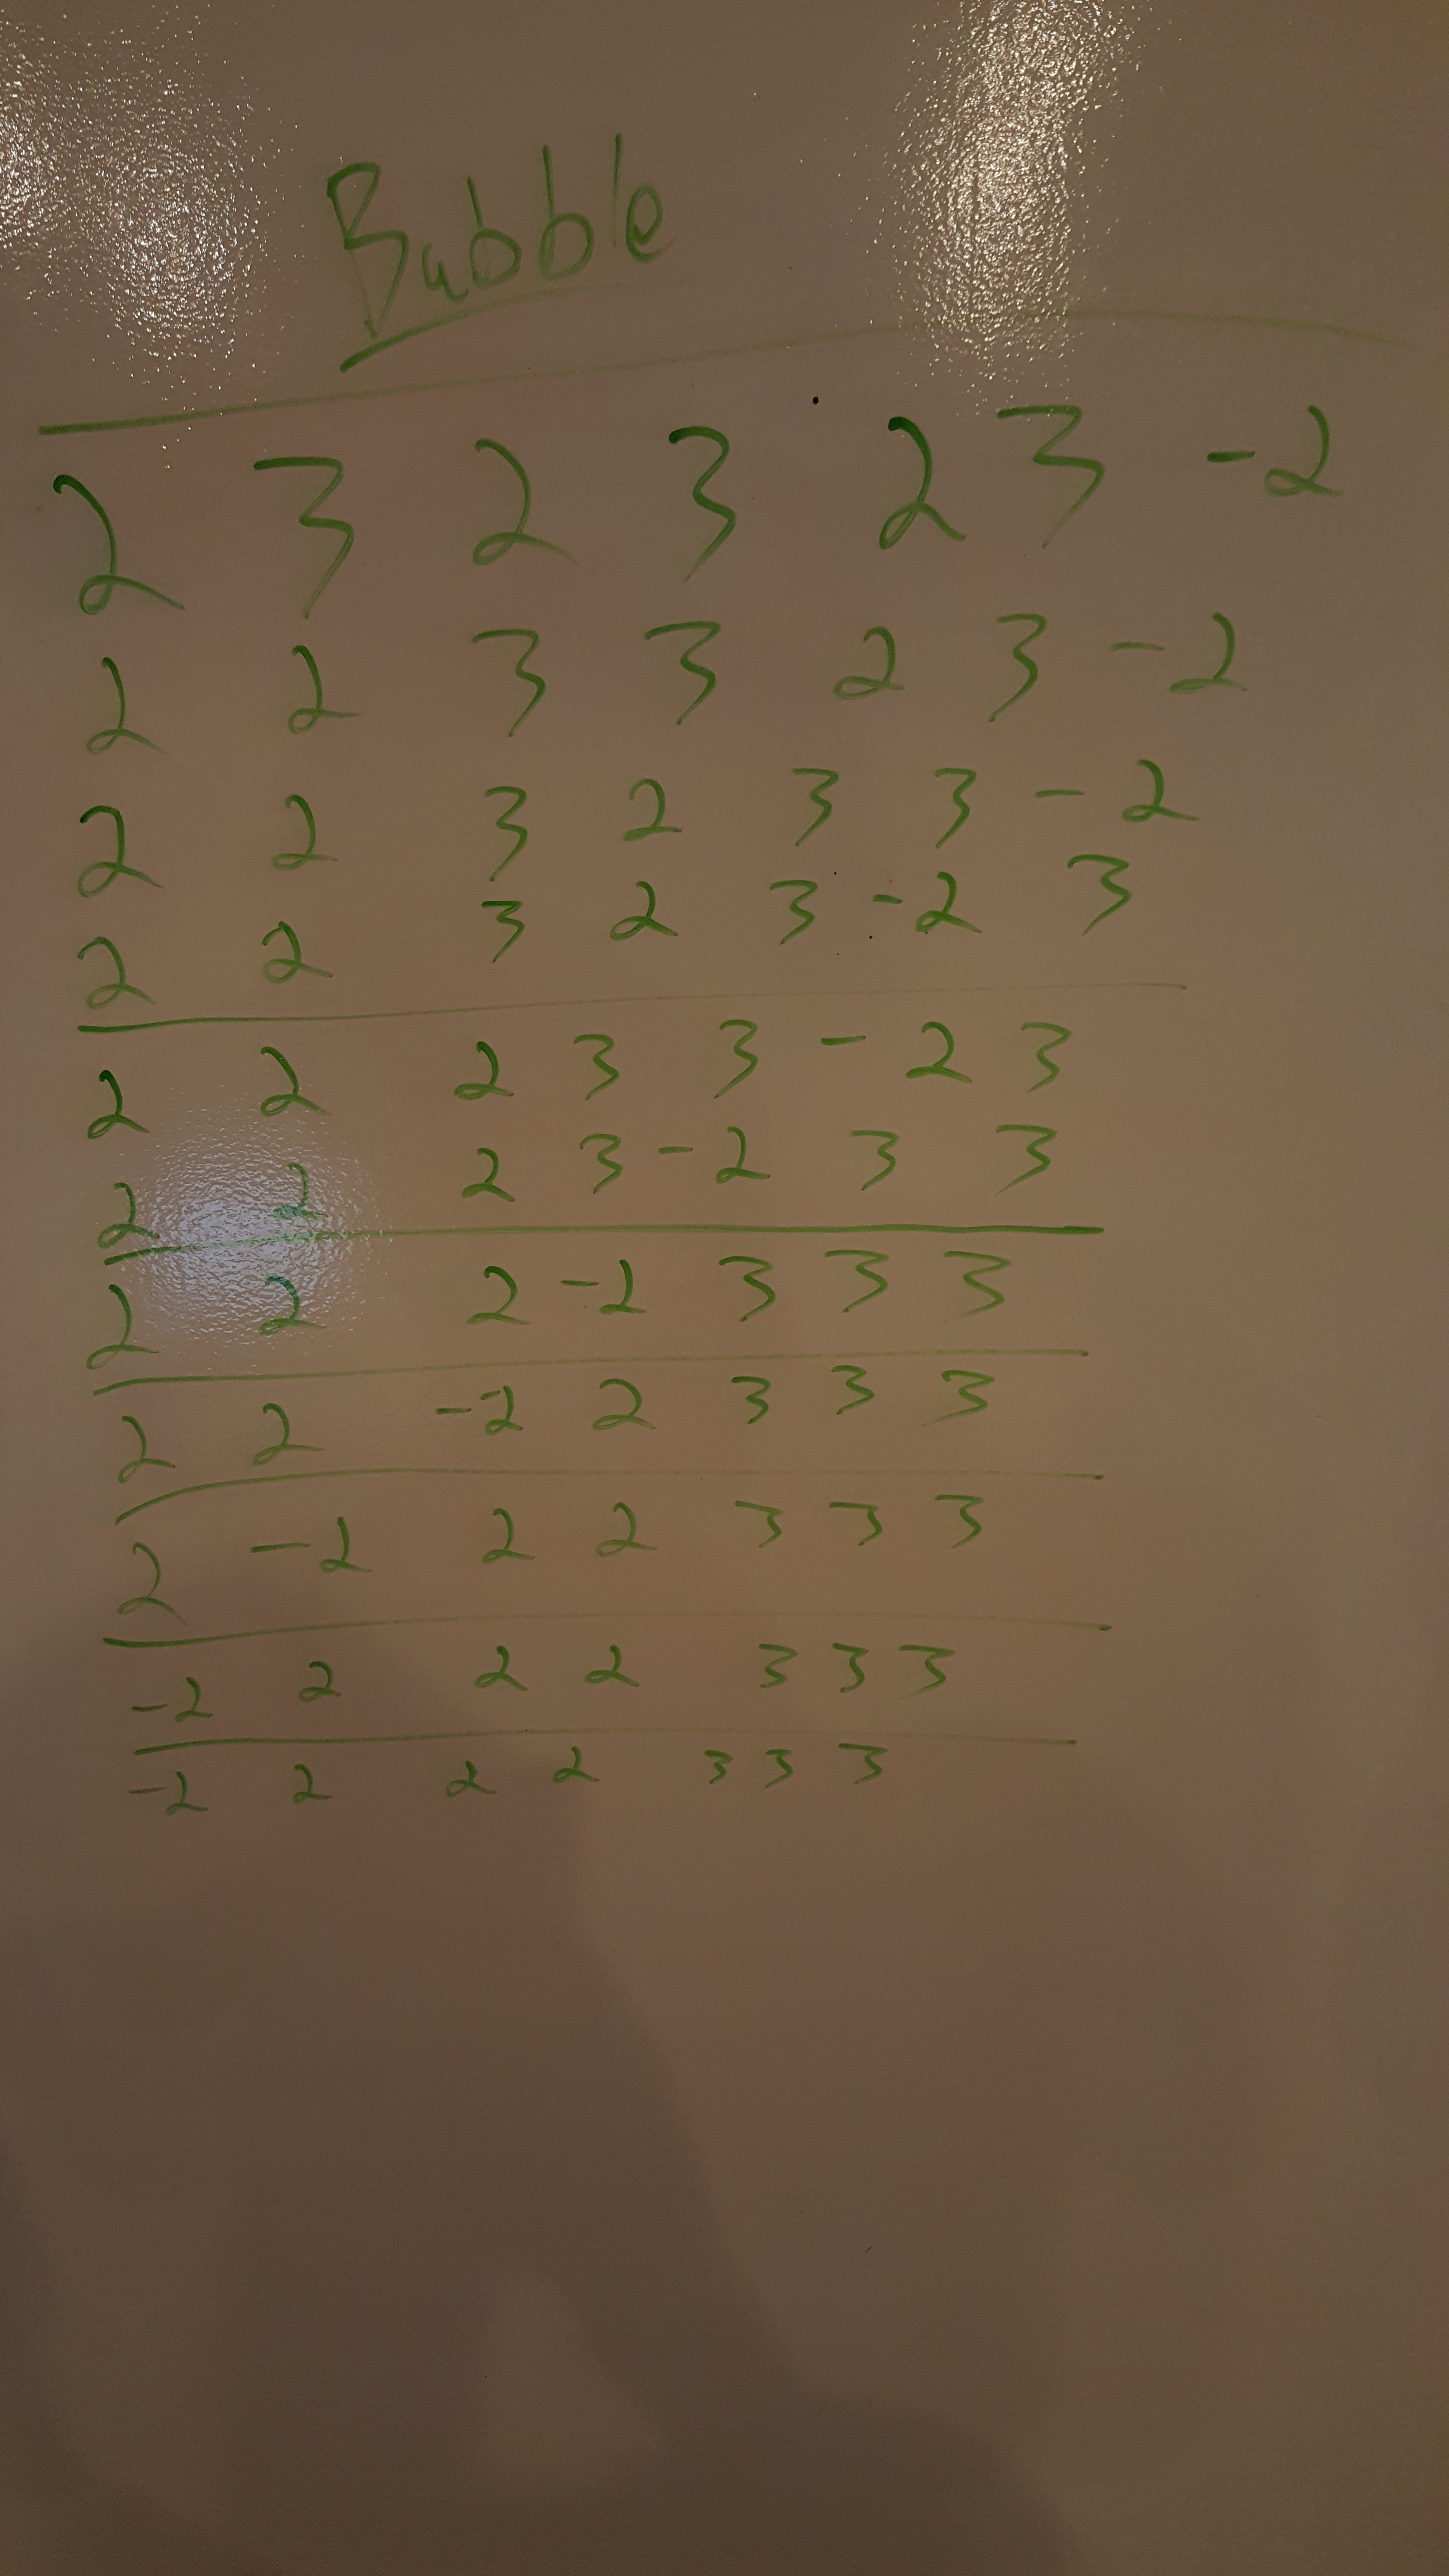 Bubble
2 3 2 3 2 3 -2
2 2 3 3 2 3 -2
2 2 3 2 3 3 -2
2 2 3 2 3 -2 3
2 2 2 3 3 -2 3
2 2 2 3 -2 3 3
2 2 2 -2 3 3 3
2 2 -2 2 3 3 3
2 -2 2 2 3 3 3
-2 2 2 2 3 3 3
-2 2 2 2 3 3 3